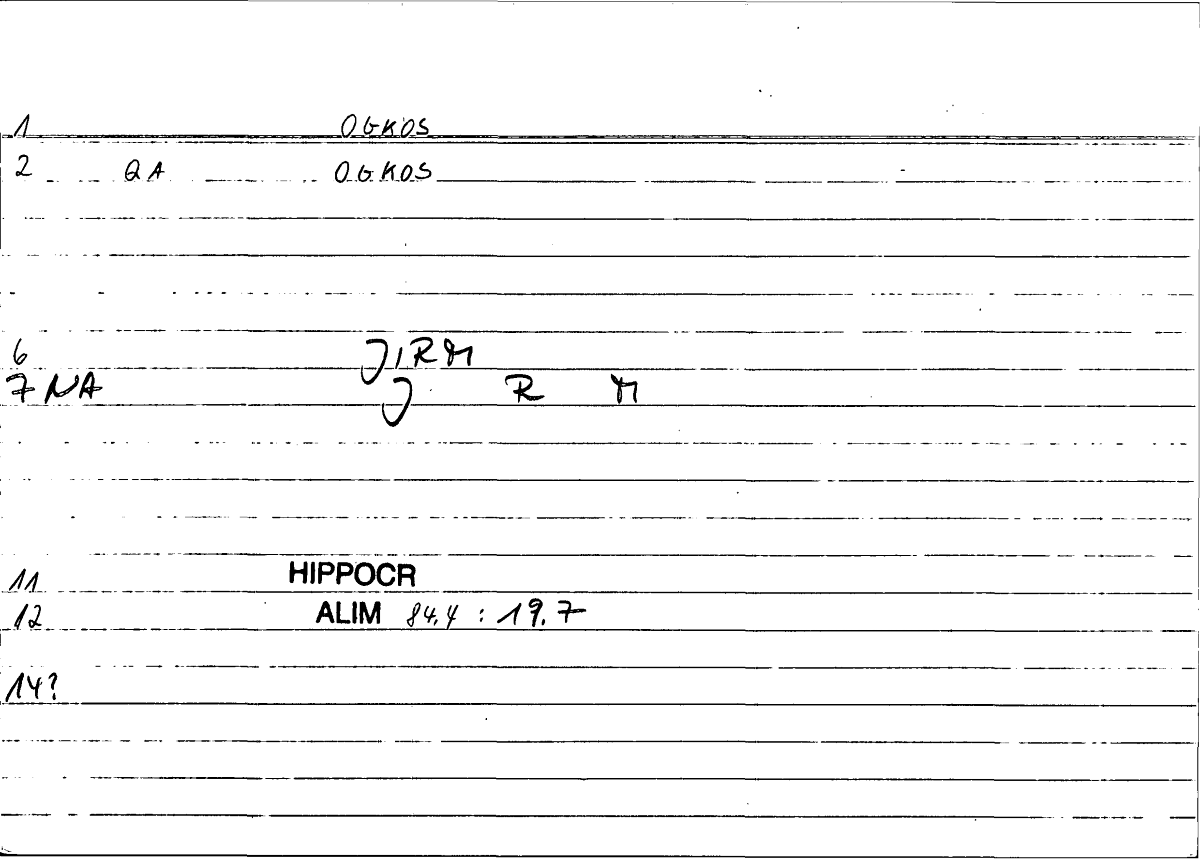 1 OGKOS
2 QA OGKOS
6 JIRM
7 NA J R M
11 HIPPOCR
12 ALIM 84,4 : 19.7
14?